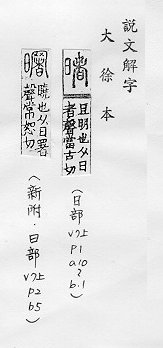 說文解字
大徐本
暏
旦明也从日
者聲當古切
(日部 V7上 p1 a10~b.1)
曙
曉也从日署
聲常恕切
(新附·日部 V7上 p2 b5)